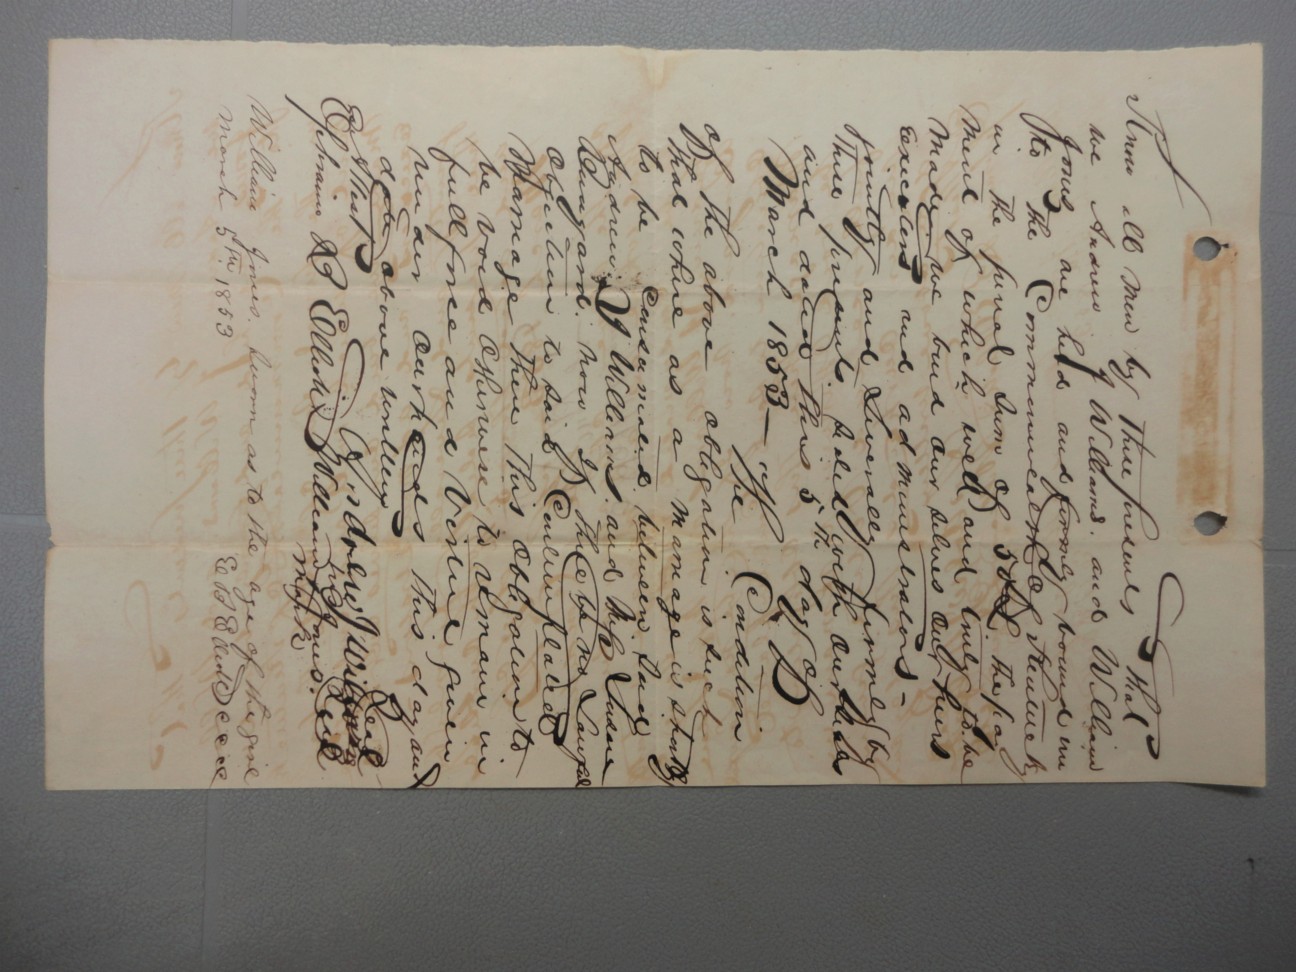 Know all men by these presents that
we Andrew J Williams. and William
Jones are held and firmly bound un
to the Commonwealth of Kentucky
in the penal sum of 50£ the pay
ment of which well and truly to be
made we bind our selves our heirs
Executors and administrators -
jointly and Severally firmly by
these presents. Seled with our seals
and dated this 5th day of
March 1853 - The Condition
of the above obligation is such
that where as a marriage is shortly
to be Consumated between said
Andrew J Williams. and Miss Susan
now If there be no Lawful
objection to said Contemplated
Marriage then this obligation to
be void otherwise to remain in
full force and virtue given
under our hands this day and
date above written
Andrew J Williams Seal
Attest
Ephraim B Elliott William his Jones. Seal
mark
William Jones. Sworn as to the age of the girl
March 5th 1853 E B Elliott